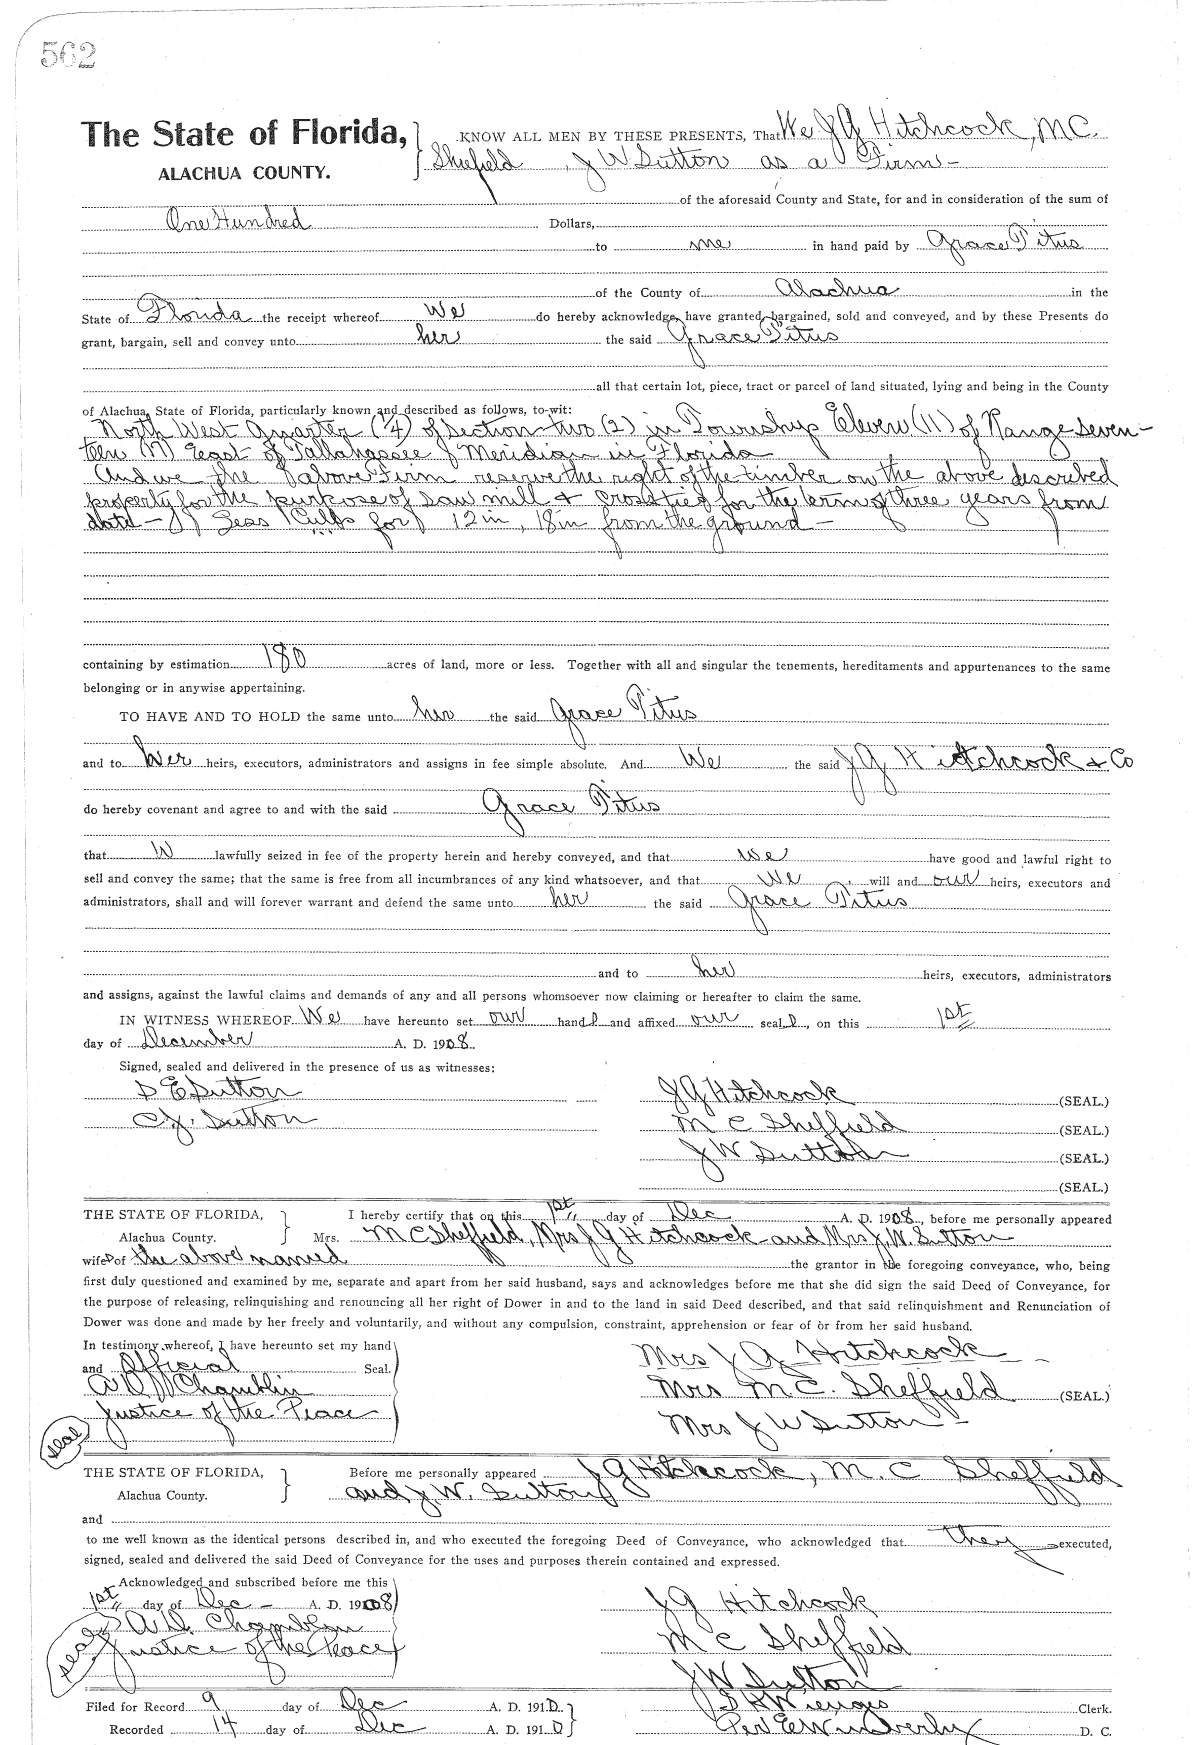 562
The State of Florida, KNOW ALL MEN BY THESE PRESENTS, That We J G Hitchcock, M.C.
ALACHUA COUNTY. Sheffield, J W Sutton as a Firm -
of the aforesaid County and State, for and in consideration of the sum of
One Hundred Dollars,
to me in hand paid by Grace Titus
of the County of Alachua in the
State of Florida the receipt whereof We do hereby acknowledge, have granted, bargained, sold and conveyed, and by these Presents do
grant, bargain, sell and convey unto her the said Grace Titus
all that certain lot, piece, tract or parcel of land situated, lying and being in the County
of Alachua, State of Florida, particularly known and described as follows, to-wit:
North West Quarter (1/4) of Section two (2) in Township Eleven (11) of Range seven-
teen (17) East of Tallahassee Meridian in Florida
And we the above Firm reserve the right of the timber on the above discribed
property for the purpose of saw mill & crossties for the term of three years from
date - for 12 in, 18 in from the ground -
containing by estimation 180 acres of land, more or less. Together with all and singular the tenements, hereditaments and appurtenances to the same
belonging or in anywise appertaining.
TO HAVE AND TO HOLD the same unto her the said Grace Titus
and to her heirs, executors, administrators and assigns in fee simple absolute. And We the said J G Hitchcock & Co
do hereby covenant and agree to and with the said Grace Titus
that W lawfully seized in fee of the property herein and hereby conveyed, and that we have good and lawful right to
sell and convey the same; that the same is free from all incumbrances of any kind whatsoever, and that We will and our heirs, executors and
administrators, shall and will forever warrant and defend the same unto her the said Grace Titus
and to her heirs, executors, administrators
and assigns, against the lawful claims and demands of any and all persons whomsoever now claiming or hereafter to claim the same.
IN WITNESS WHEREOF We have hereunto set our hands and affixed our seals, on this 1st
day of December A. D. 1908.
Signed, sealed and delivered in the presence of us as witnesses:
D E Sutton J G Hitchcock (SEAL.)
C. J. Sutton M C Sheffield (SEAL.)
J W Sutton (SEAL.)
(SEAL.)
THE STATE OF FLORIDA, I hereby certify that on this 1st day of Dec A. D. 1908, before me personally appeared
Alachua County. Mrs. M C Sheffield, Mrs J G Hitchcock and Mrs J. W. Sutton
wifes of the above named the grantor in the foregoing conveyance, who, being
first duly questioned and examined by me, separate and apart from her said husband, says and acknowledges before me that she did sign the said Deed of Conveyance, for
the purpose of releasing, relinquishing and renouncing all her right of Dower in and to the land in said Deed described, and that said relinquishment and Renunciation of
Dower was done and made by her freely and voluntarily, and without any compulsion, constraint, apprehension or fear of or from her said husband.
In testimony whereof, I have hereunto set my hand Mrs J G Hitchcock
and Official Seal.
Chamblin Mrs M C. Sheffield (SEAL.)
Justice of the Peace Mrs J W Sutton -
seal
THE STATE OF FLORIDA, Before me personally appeared J G Hitchcock, M. C Sheffield
Alachua County. and J. W. Sutton
and
to me well known as the identical persons described in, and who executed the foregoing Deed of Conveyance, who acknowledged that they executed,
signed, sealed and delivered the said Deed of Conveyance for the uses and purposes therein contained and expressed.
Acknowledged and subscribed before me this
1st day of Dec - A. D. 1908 J G Hitchcock
Chamblin M C Sheffield
seal Justice of the Peace
J W Sutton
Filed for Record 9 day of Dec A. D. 1910. S H Wienges Clerk.
Recorded 14 day of Dec A. D. 1910 Per E Wimberly D. C.